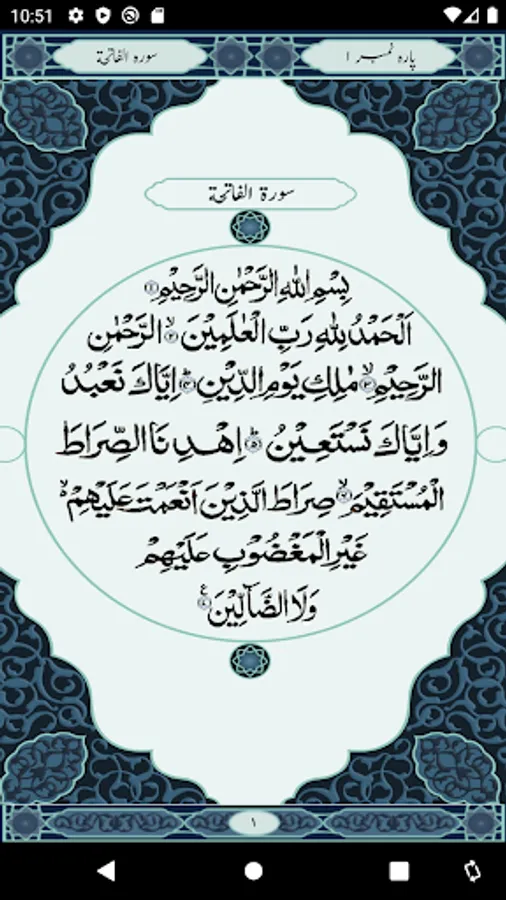 10:51
سورہ الفاتحۃ
پارہ نمبر ۱
سورۃ الفاتحۃ
بِسْمِ اللهِ الرَّحْمٰنِ الرَّحِيْمِ ۝۱
اَلْحَمْدُ لِلّٰهِ رَبِّ الْعٰلَمِيْنَ ۝ۙ۲ الرَّحْمٰنِ
الرَّحِيْمِ ۝ۙ۳ مٰلِكِ يَوْمِ الدِّيْنِ ۝ؕ۴ اِيَّاكَ نَعْبُدُ
وَاِيَّاكَ نَسْتَعِيْنُ ۝ؕ۵ اِهْدِنَا الصِّرَاطَ
الْمُسْتَقِيْمَ ۝ۙ۶ صِرَاطَ الَّذِيْنَ اَنْعَمْتَ عَلَيْهِمْ ۝ۙ
غَيْرِ الْمَغْضُوْبِ عَلَيْهِمْ
وَلَا الضَّآلِّيْنَ ۝۷ع
۱